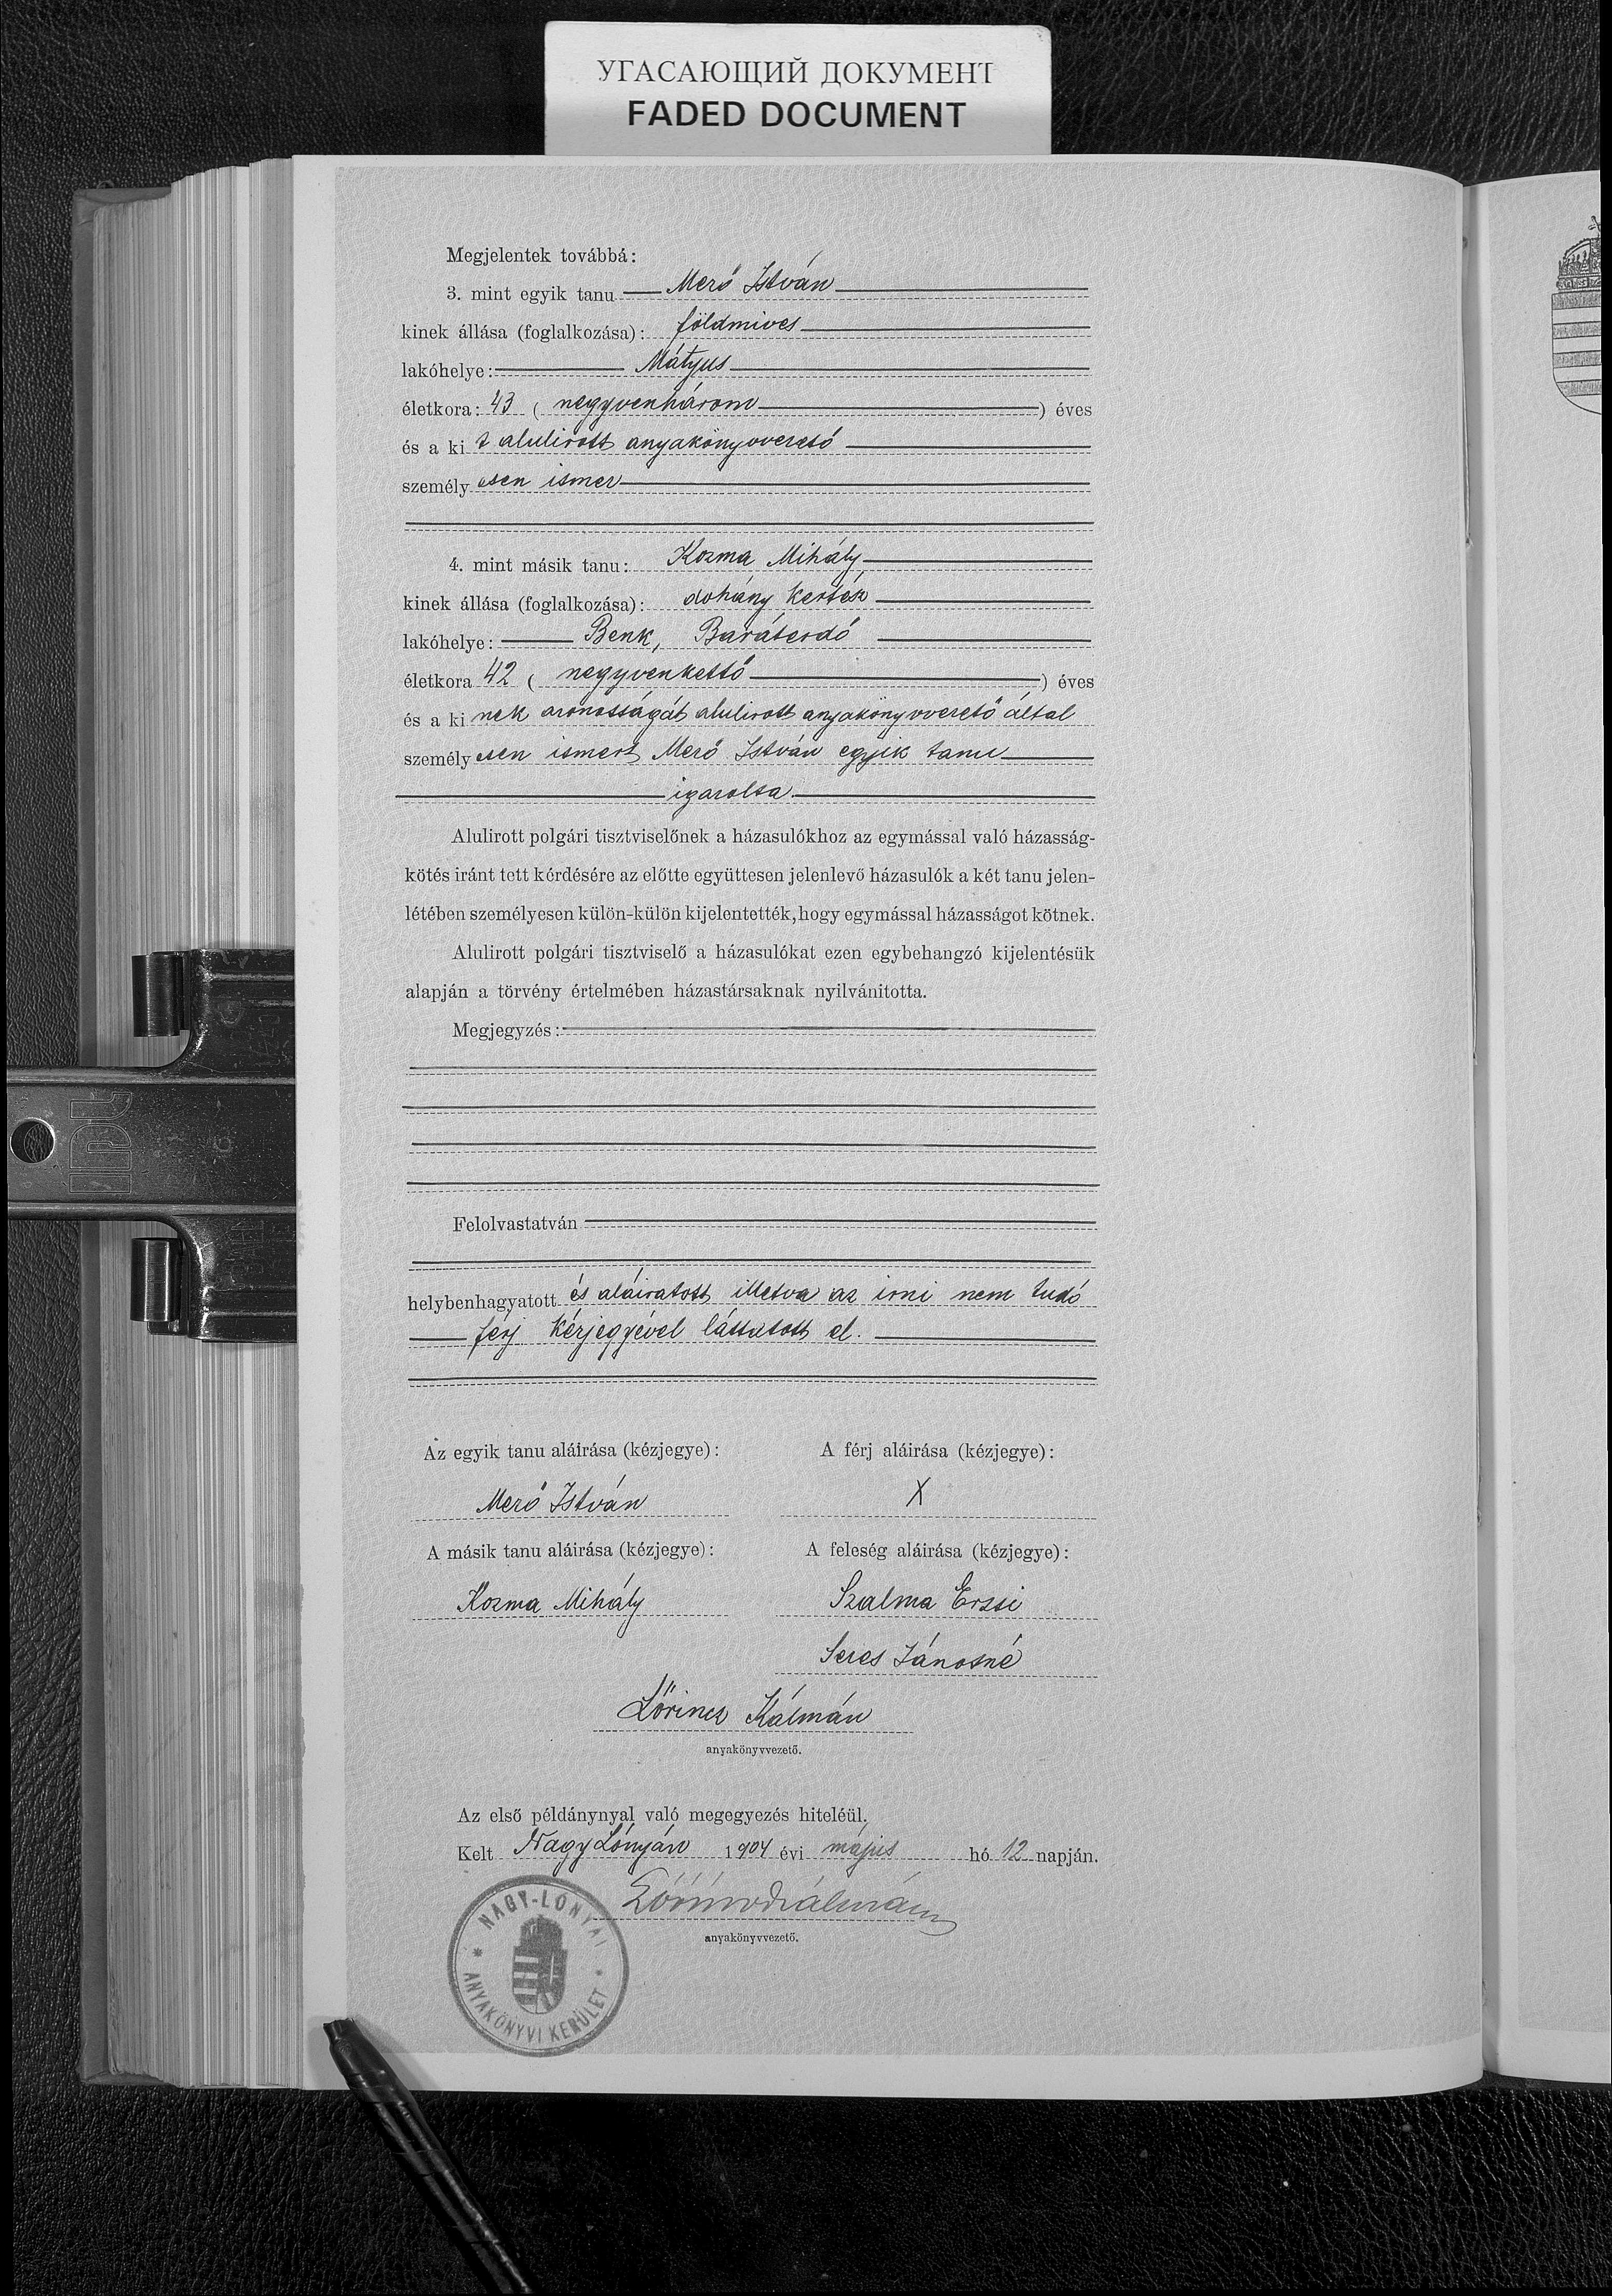 УГАСАЮЩИЙ ДОКУМЕНТ
FADED DOCUMENT
Megjelentek továbbá:
3. mint egyik tanu Merő István
kinek állása (foglalkozása): földmives
lakóhelye: Mátyus
életkora: 43 ( negyvenhárom ) éves
és a ki t alulirott anyakönyvvezető
személy esen ismer
4. mint másik tanu: Kozma Mihály
kinek állása (foglalkozása): dohány kertész
lakóhelye: Benk, Baráterdó
életkora 42 ( negyvenkettő ) éves
és a ki nek azonosságát alulirott anyakönyvvezető által
személy esen ismert Merő István egyik tanu
igazolta.
Alulirott polgári tisztviselőnek a házasulókhoz az egymással való házasság-
kötés iránt tett kérdésére az előtte együttesen jelenlevő házasulók a két tanu jelen-
létében személyesen külön-külön kijelentették, hogy egymással házasságot kötnek.
Alulirott polgári tisztviselő a házasulókat ezen egybehangzó kijelentésük
alapján a törvény értelmében házastársaknak nyilvánitotta.
Megjegyzés:
Felolvastatván
helybenhagyatott és aláiratott illetve az irni nem tudó
férj kézjegyével láttatott el.
Az egyik tanu aláirása (kézjegye): A férj aláirása (kézjegye):
Merő István X
A másik tanu aláirása (kézjegye): A feleség aláirása (kézjegye):
Kozma Mihály Szalma Erzsi
Seres Jánosné
Lőrincz Kálmán
anyakönyvvezető.
Az első példánynyal való megegyezés hiteléül.
Kelt Nagy Lónyán 1904 évi május hó 12 napján.
Lőrincz Kálmán
anyakönyvvezető.
NAGY-LÓNYAI
ANYAKÖNYVI KERÜLET